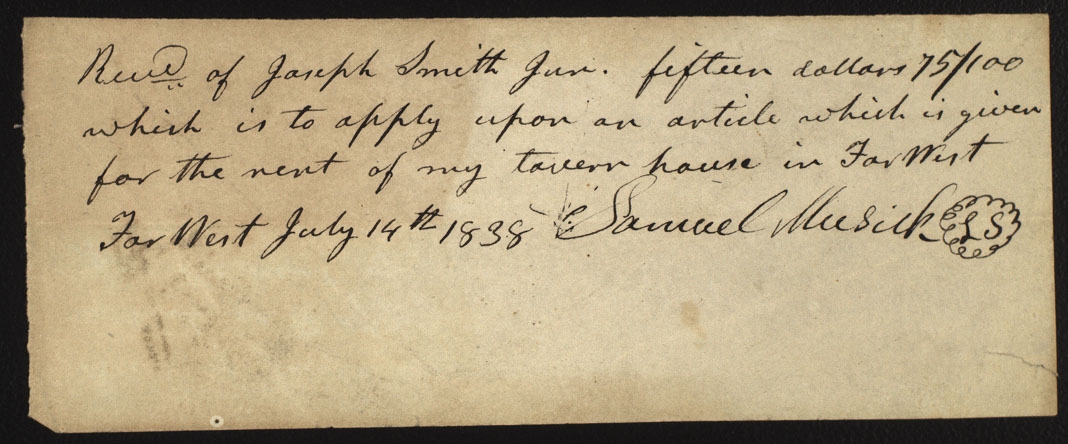 Recvd of Joseph Smith Jun. fifteen dollars 75/100
which is to apply upon an article which is given
for the rent of my tavern house in Far West
Far West July 14th 1838 Samuel Musick LS